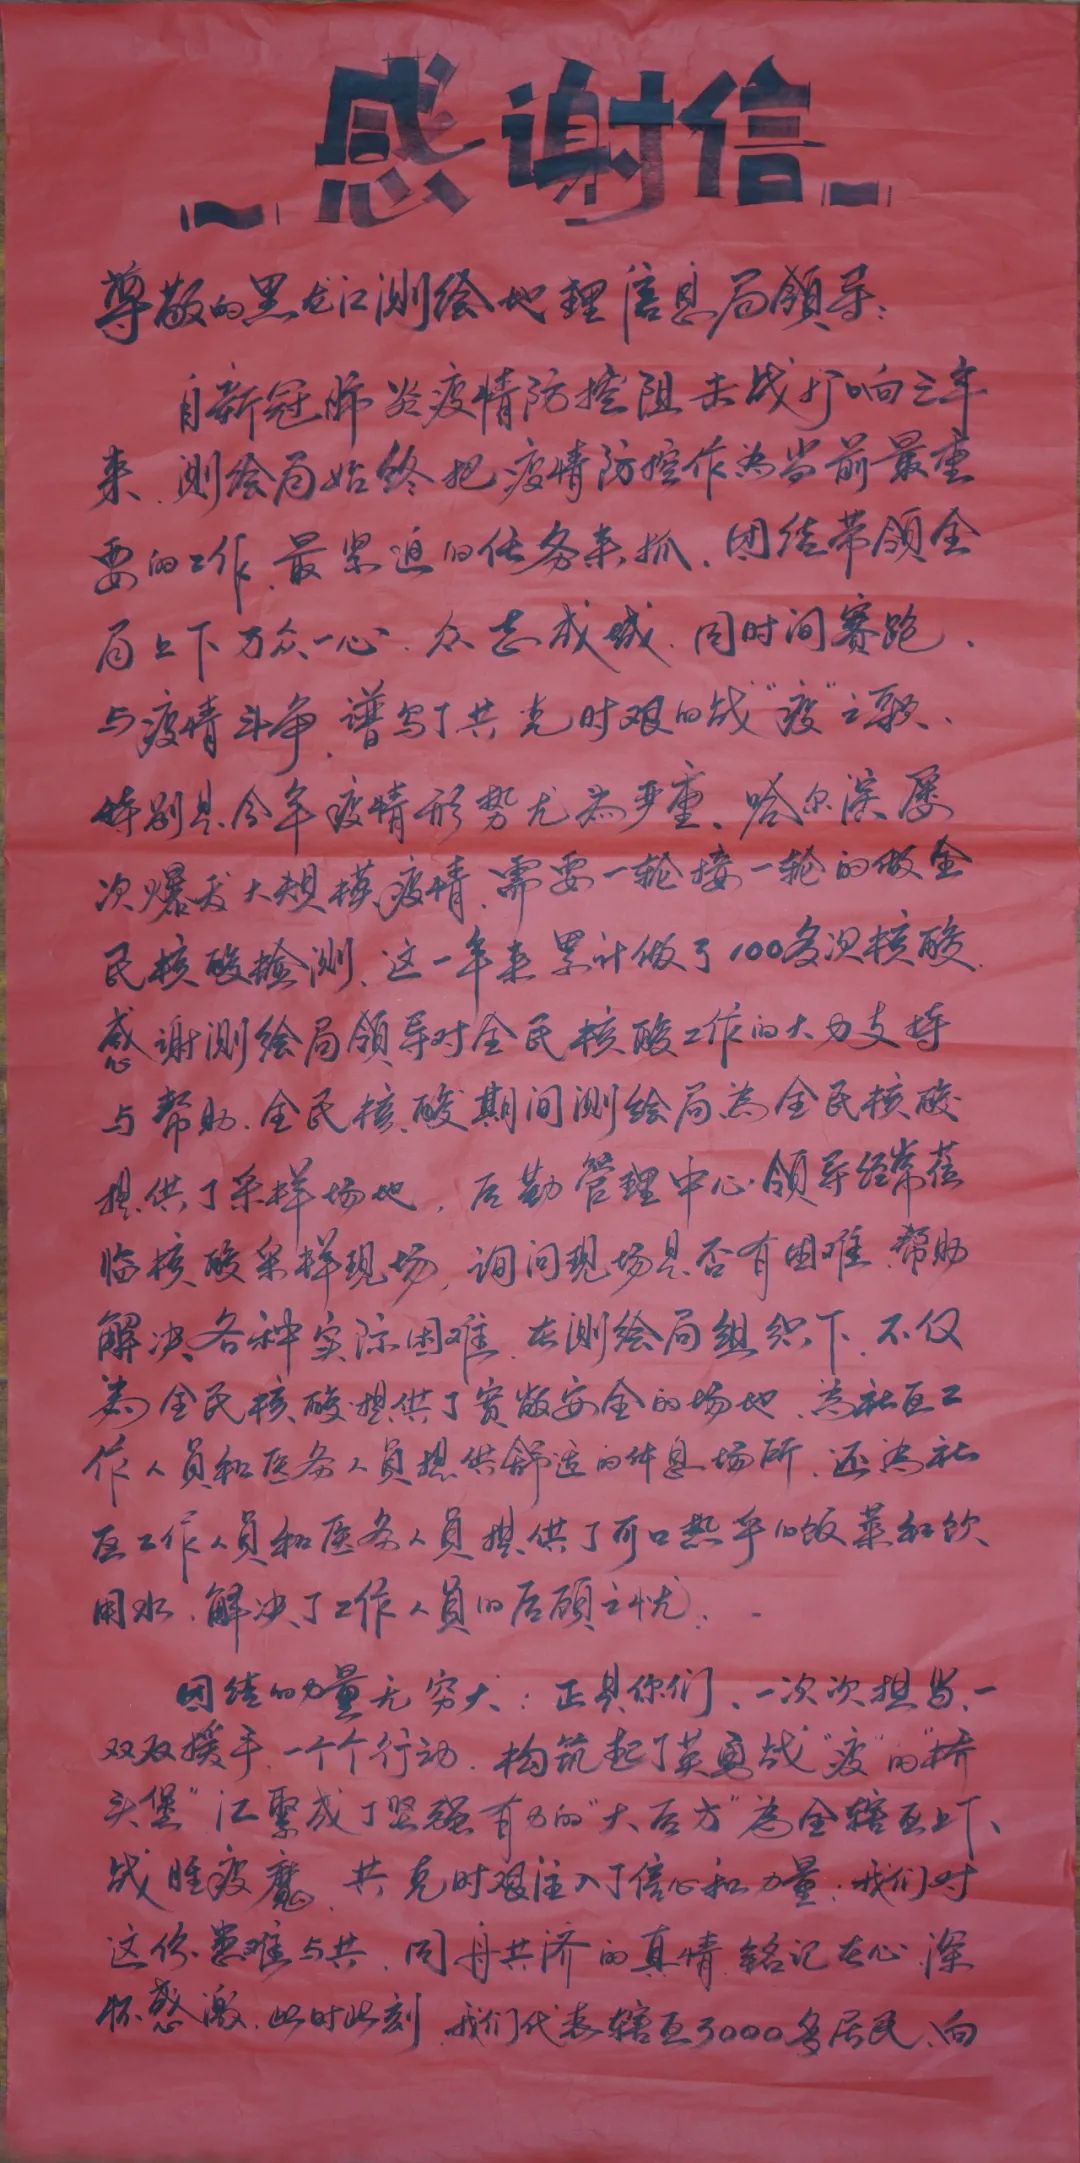 感谢信
尊敬的黑龙江测绘地理信息局领导：
自新冠肺炎疫情防控阻击战打响三年
来，测绘局始终把疫情防控作为当前最重
要的工作，最紧迫的任务来抓，团结带领全
局上下万众一心，众志成城，同时间赛跑，
与疫情斗争，谱写了共克时艰的战“疫”之歌，
特别是今年疫情形势尤为严重，哈尔滨屡
次爆发大规模疫情，需要一轮接一轮的做全
民核酸检测，这一年来累计做了100多次核酸，
感谢测绘局领导对全民核酸工作的大力支持
与帮助，全民核酸期间测绘局为全民核酸
提供了采样场地，后勤管理中心领导经常莅
临核酸采样现场，询问现场是否有困难，帮助
解决各种实际困难，在测绘局组织下，不仅
为全民核酸提供了宽敞安全的场地，为社区工
作人员和医务人员提供舒适的休息场所，还为社
区工作人员和医务人员提供了可口热乎的饭菜和饮
用水，解决了工作人员的后顾之忧，
团结的力量无穷大：正是你们，一次次担当，一
双双援手，一个个行动，构筑起了英勇战“疫”的“桥
头堡”汇聚成了坚强有力的“大后方”为全辖区上下，
战胜疫魔，共克时艰注入了信心和力量；我们对
这份患难与共，同舟共济的真情铭记在心，深
怀感激，此时此刻，我们代表辖区3000多居民，向